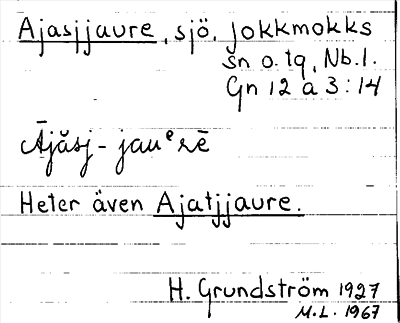 Ajasjjaure, sjö, Jokkmokks
sn o. tg, Nb. l.
Gn 12 a 3:14
Ājăsj-jauᵉrē
Heter även Ajatjjaure.
H. Grundström 1927
M.L. 1967